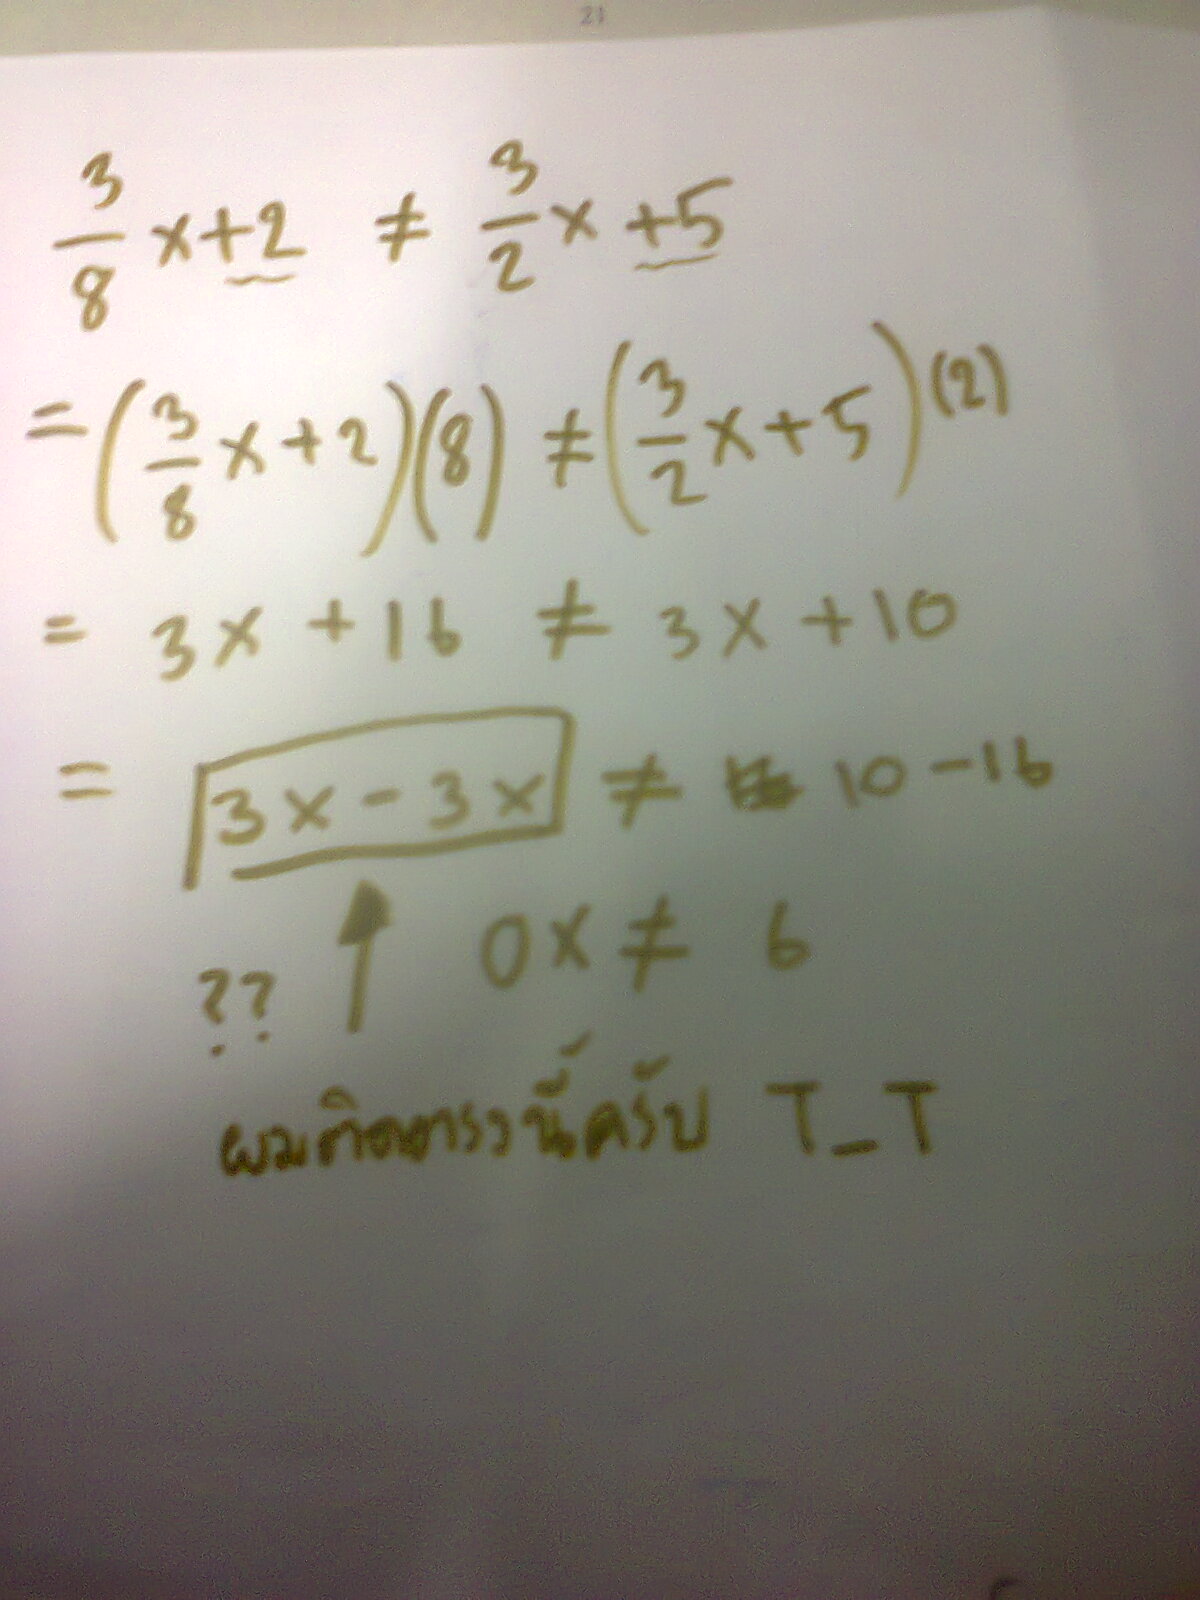 21
3/8 x+2 ≠ 3/2 x +5
= (3/8 x + 2)(8) ≠ (3/2 x + 5)(2)
= 3x + 16 ≠ 3x + 10
= 3x - 3x ≠ 10 - 16
0x ≠ 6
??
ผมติดตรงนี้ครับ T_T